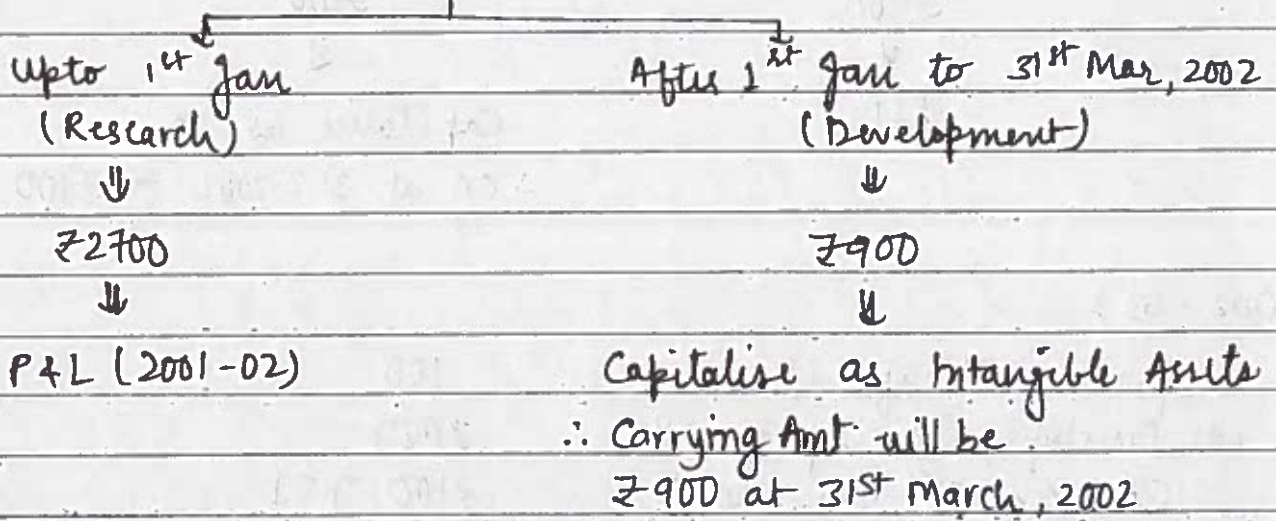 Upto 1st Jan
(Research)
⇓
₹2700
⇓
P&L (2001-02)
After 1st Jan to 31st Mar, 2002
(Development)
⇓
₹900
⇓
Capitalise as Intangible Assets
∴ Carrying Amt will be
₹900 at 31st March, 2002